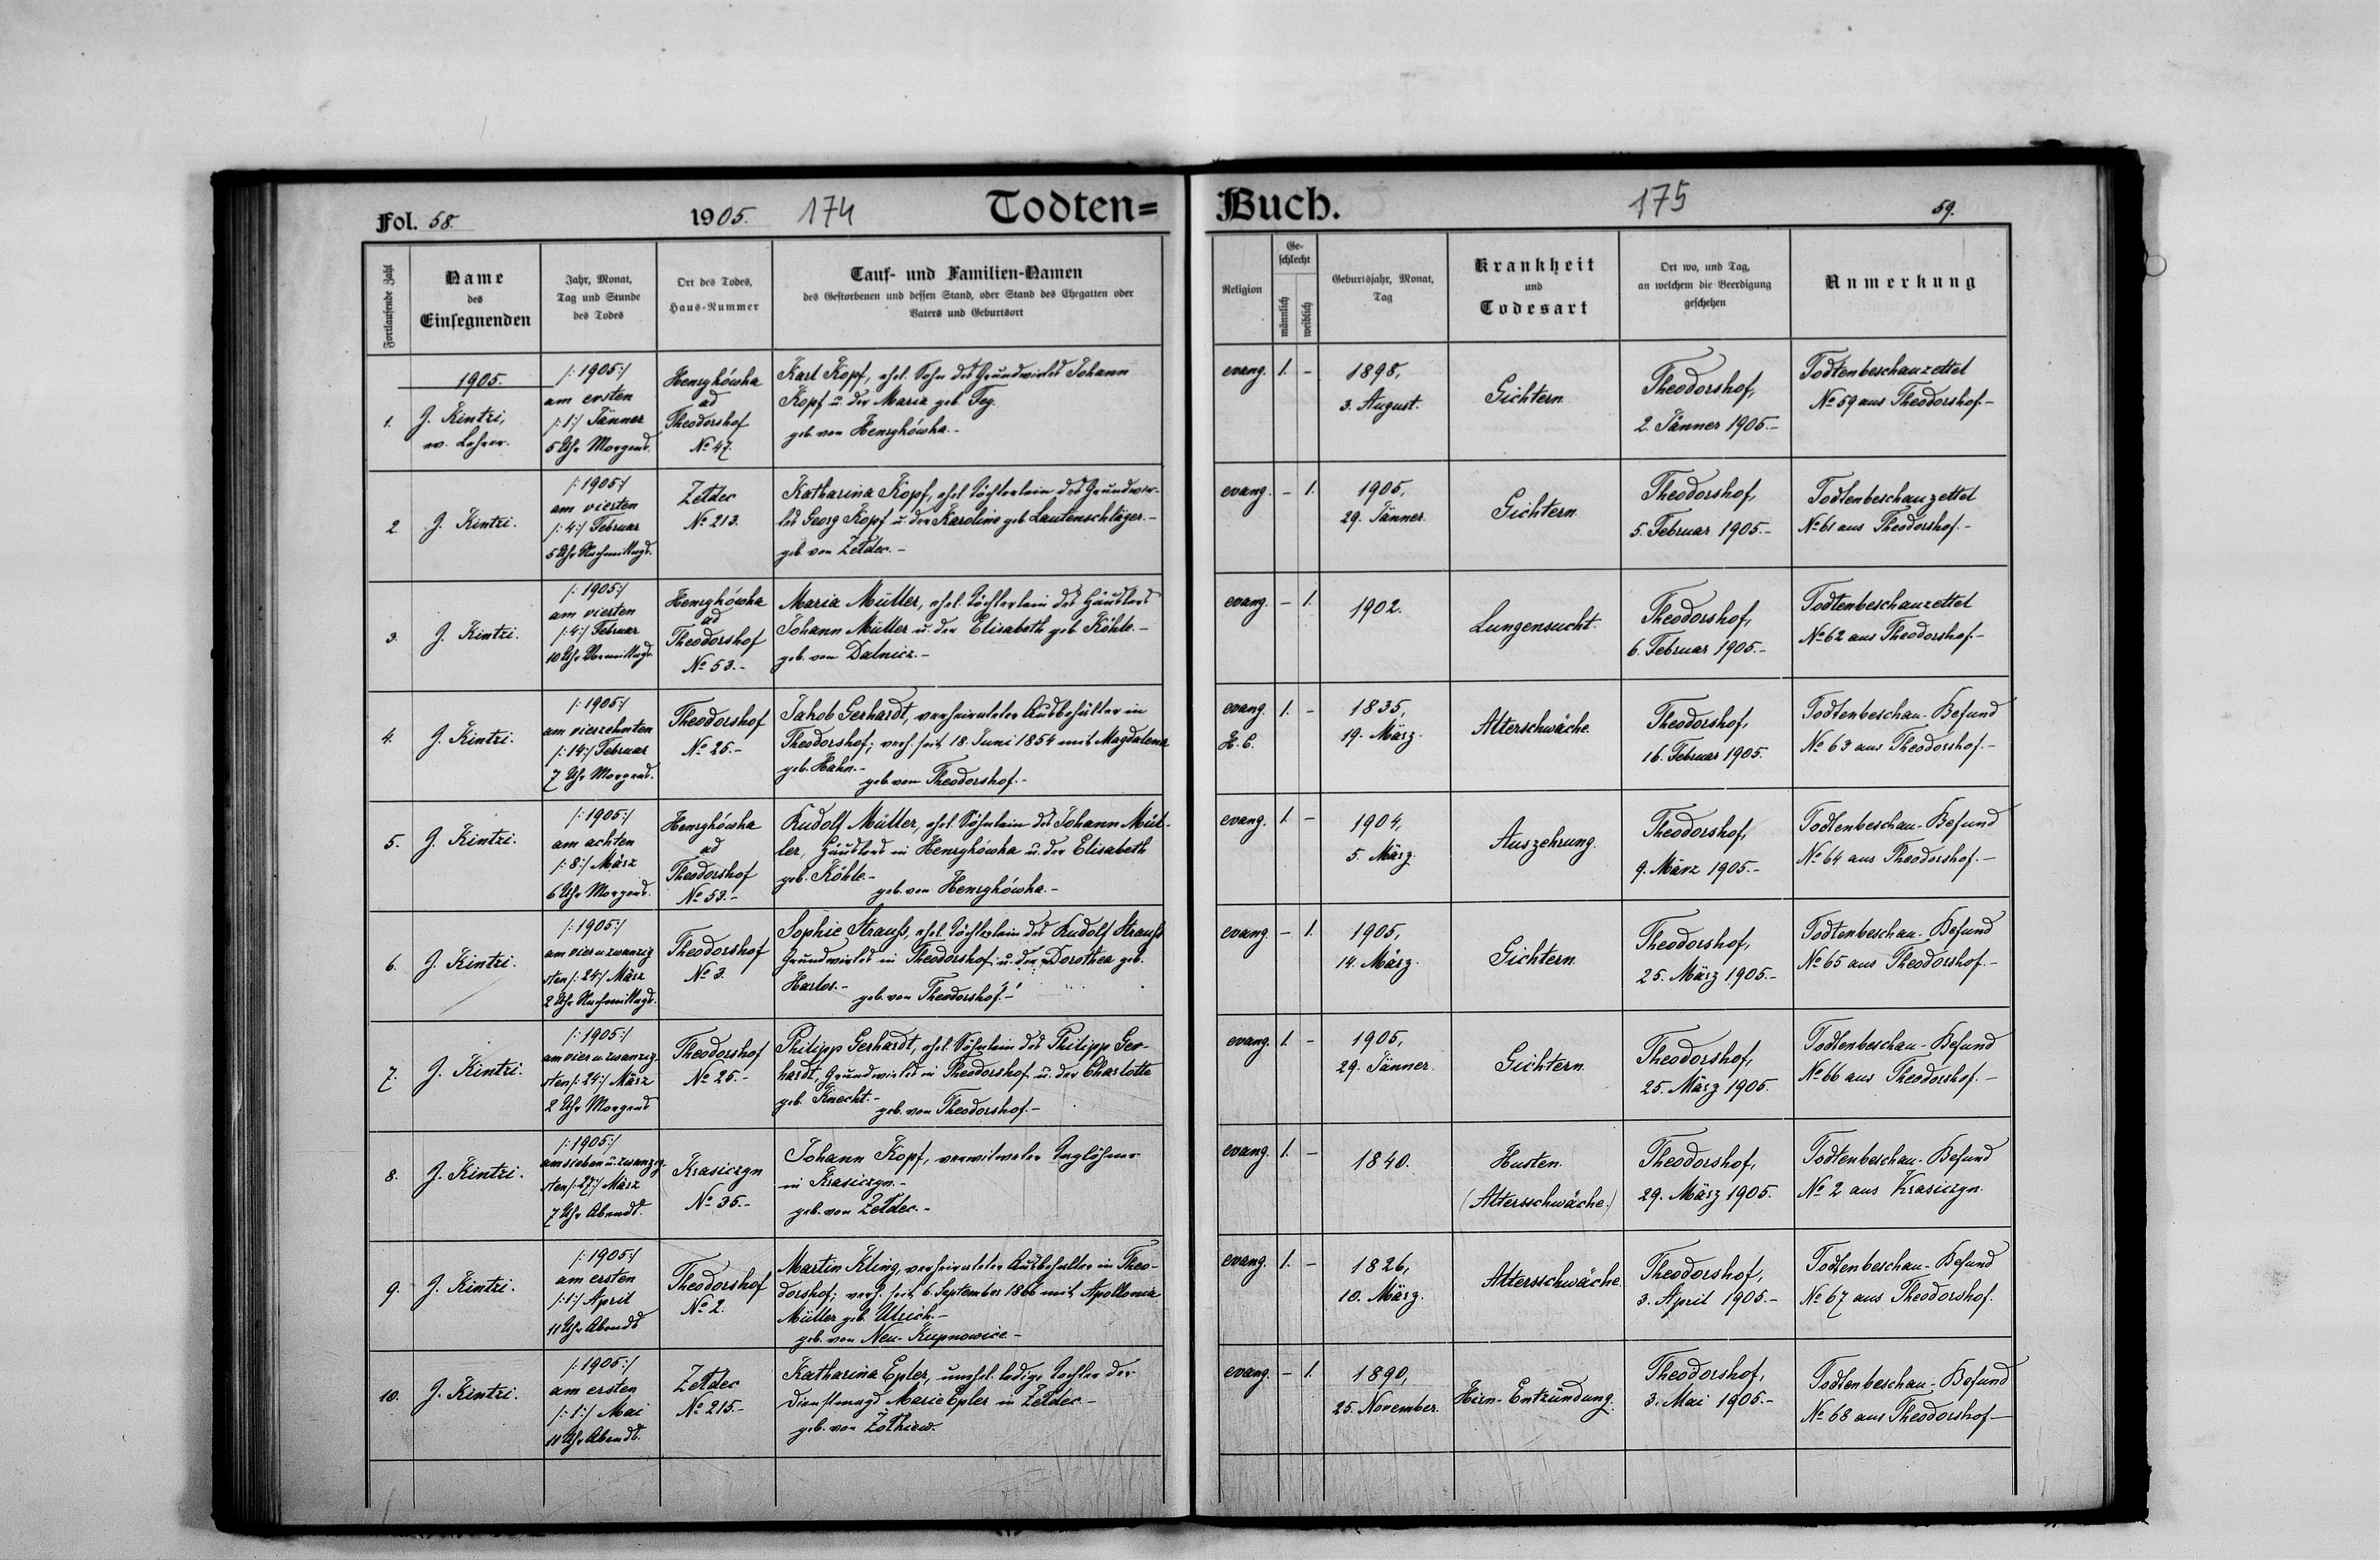 Fol. 58. 1905. 174 Todten=
Fortlaufende Zahl
Name
des
Einsegnenden
Jahr, Monat,
Tag und Stunde
des Todes
Ort des Todes,
Haus-Nummer
Tauf- und Familien-Namen
des Gestorbenen und dessen Stand, oder Stand des Ehegatten oder
Vaters und Geburtsort
1905.
1.
J. Kintzi,
ev. Lehrer.
/:1905:/
am ersten
/:1:/ Jänner
5 Uhr Morgens.
Henrykówka
ad
Theodorshof
No 47.
Karl Kopf, ehel. Sohn des Grundwirtes Johann
Kopf u. der Maria geb. Feg.
geb. von Henrykówka.-
2
J. Kintzi.
/:1905:/
am vierten
/:4:/ Februar
5 Uhr Nachmittags.
Zełdec
No 213.
Katharina Kopf, ehel. Töchterlein des Grundwir-
tes Georg Kopf u. der Karoline geb. Lautenschläger.-
geb. von Zełdec.-
3.
J. Kintzi.
/:1905:/
am vierten
/:4:/ Februar
10 Uhr Vormittags
Henrykówka
ad
Theodorshof
No 53.-
Maria Müller, ehel. Töchterlein des Häuslers
Johann Müller u. der Elisabeth geb. Köhle.-
geb. von Dalnicz.-
4.
J. Kintzi.
/:1905:/
am vierzehnten
/:14:/ Februar
7 Uhr Morgens.
Theodorshof
No 25.-
Jakob Gerhardt, verheirateter Ausbehälter in
Theodorshof; verh. seit 18. Juni 1854 mit Magdalena
geb. Hahn.-
geb. von Theodorshof.-
5.
J. Kintzi.
/:1905:/
am achten
/:8:/ März
6 Uhr Morgens.
Henrykówka
ad
Theodorshof
No 53.-
Rudolf Müller, ehel. Söhnlein des Johann Mül-
ler, Häuslers in Henrykówka u. der Elisabeth
geb. Köhle.-
geb. von Henrykówka.-
6.
J. Kintzi.
/:1905:/
am vier u. zwanzig
sten /:24:/ März
2 Uhr Nachmittags.
Theodorshof
No 3.
Sophie Strauß, ehel. Töchterlein des Rudolf Strauß
Grundwirtes in Theodorshof u. der Dorothea geb.
geb. von Theodorshof.-
7.
J. Kintzi.
/:1905:/
am vier u. zwanzig
sten /:24:/ März
2 Uhr Morgens
Theodorshof
No 25.-
Philipp Gerhardt, ehel. Söhnlein des Philipp Ger-
hardt, Grundwirtes in Theodorshof u. der Charlotte
geb. Knecht.-
geb. von Theodorshof.-
8.
J. Kintzi.
/:1905:/
am sieben u. zwanzig-
sten /:27:/ März
7 Uhr Abends.
Krasiczyn
No 35.-
Johann Kopf, verwitweter Taglöhner
in Krasiczyn.-
geb. von Zełdec.-
9.
J. Kintzi.
/:1905:/
am ersten
/:1:/ April
11 Uhr Abends
Theodorshof
No 2.
Martin Kling, verheirateter Ausbehalter in Theo-
dorshof; verh. seit 6. September 1866 mit Apollonia
Müller geb. Ulrich.-
geb. von Neu-Kupnowice-
10.
J. Kintzi.
/:1905:/
am ersten
/:1:/ Mai
11 Uhr Abends.
Zełdec
No 215.-
Katharina Epler, unehel. ledige Tochter der
Dienstmagd Marie Epler in Zełdec.-
geb. von Żółkiew.
Buch. 175 59.
Religion
Ge-
schlecht
männlich
weiblich
Geburtsjahr, Monat,
Tag
Krankheit
und
Todesart
Ort wo, und Tag,
an welchem die Beerdigung
geschehen
Anmerkung
evang. 1. -
1898,
3. August.
Gichtern
Theodorshof,
2. Jänner 1905.-
Todtenbeschauzettel
No 59 aus Theodorshof.-
evang. - 1.
1905,
29. Jänner.
Gichtern
Theodorshof,
5. Februar 1905.-
Todtenbeschauzettel
No 61 aus Theodorshof.-
evang. - 1.
1902.
Lungensucht.
Theodorshof,
6. Februar 1905.-
Todtenbeschauzettel
No 62 aus Theodorshof.-
evang. 1. -
H. C.
1835,
19. März.
Alterschwäche.
Theodorshof,
16. Februar 1905.
Todtenbeschau-Befund
No 63 aus Theodorshof.-
evang. 1. -
1904,
5. März.
Auszehrung.
Theodorshof,
9. März 1905.-
Todtenbeschau-Befund
No 64 aus Theodorshof.-
evang. - 1.
1905,
14. März.
Gichtern.
Theodorshof,
25. März 1905.-
Todtenbeschau-Befund
No 65 aus Theodorshof.-
evang. 1. -
1905,
29. Jänner.
Gichtern.
Theodorshof,
25. März 1905.
Todtenbeschau-Befund
No 66 aus Theodorshof.-
evang. 1. -
1840.
Husten.
(Altersschwäche.)
Theodorshof,
29. März 1905.
Todtenbeschau-Befund
No 2 aus Krasiczyn.
evang. 1. -
1826,
10. März.
Altersschwäche.
Theodorshof,
3. April 1905.-
Todtenbeschau-Befund
No 67 aus Theodorshof.
evang. - 1.
1890,
25. November.
Hirn-Entzündung.
Theodorshof,
3. Mai 1905.-
Todtenbeschau-Befund
No 68 aus Theodorshof-